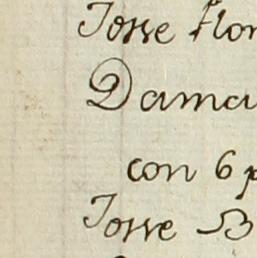 Tosse Flor
Damau
con 6 p
Tosse B